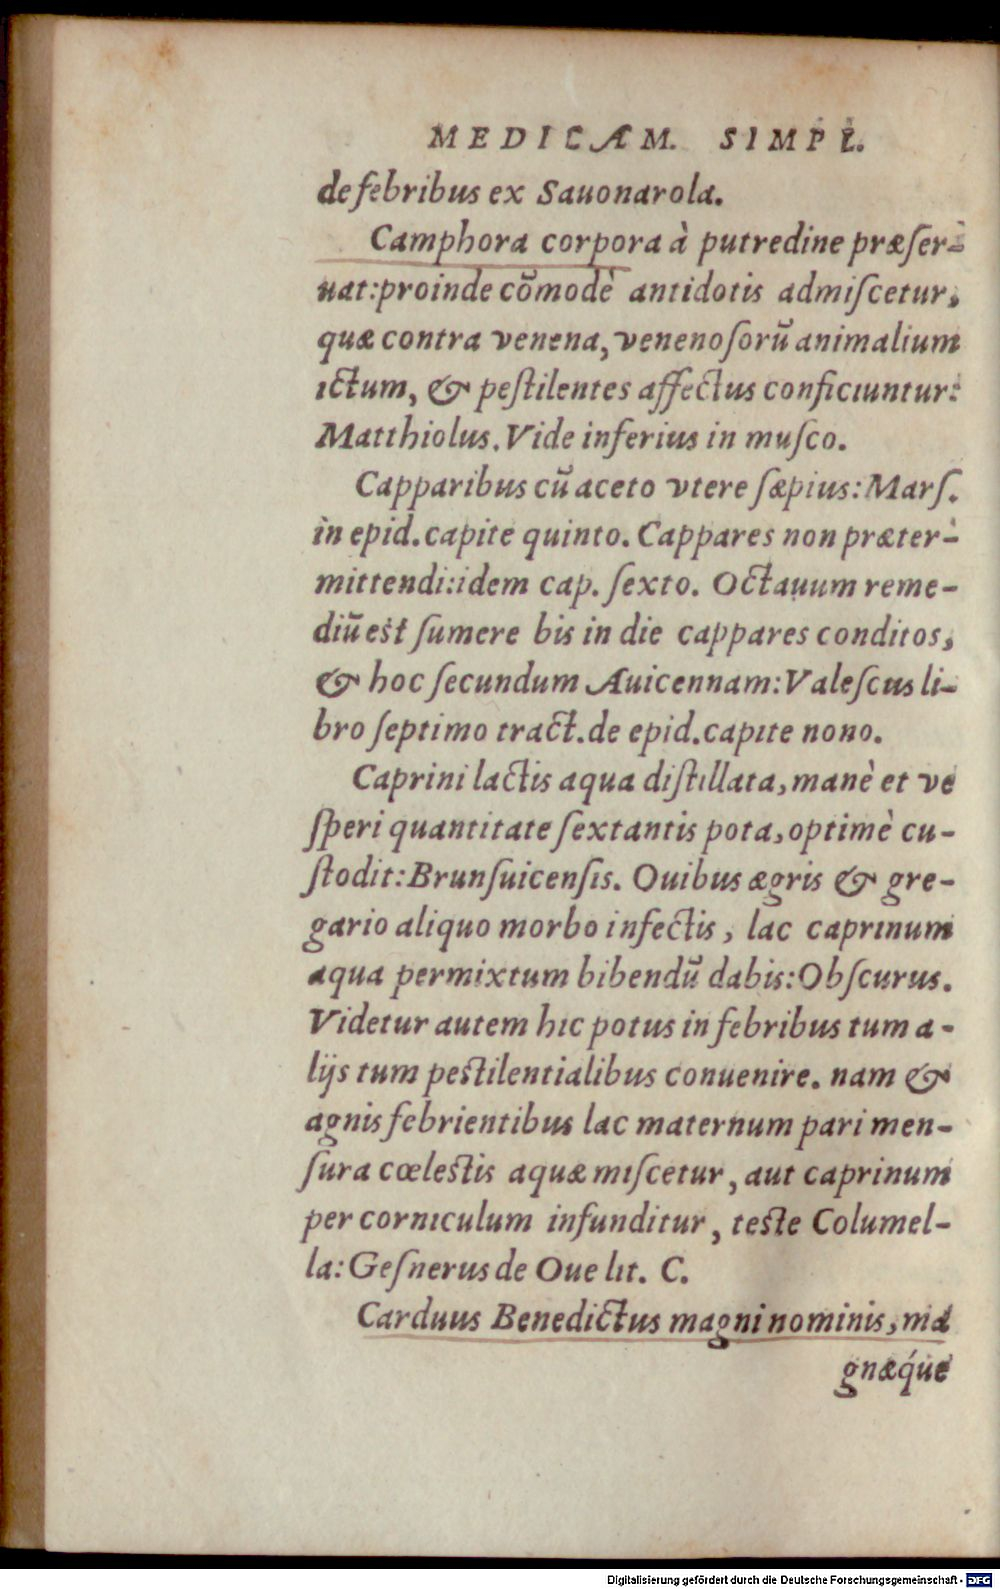 MEDICAM. SIMPL.
de febribus ex Sauonarola.
Camphora corpora à putredine præſer-
uat:proinde cõmodè antidotis admiſcetur,
quæ contra venena, venenoſorũ animalium
ictum, & peſtilentes affectus conficiuntur:
Matthiolus. Vide inferius in muſco.
Capparibus cũ aceto vtere ſæpius: Marſ.
in epid. capite quinto. Cappares non præter-
mittendi:idem cap. ſexto. Octauum reme-
diũ est ſumere bis in die cappares conditos,
& hoc ſecundum Auicennam: Valeſcus li-
bro ſeptimo tract. de epid. capite nono.
Caprini lactis aqua diſtillata, manè et ve
ſperi quantitate ſextantis pota, optimè cu-
ſtodit: Brunſuicenſis. Ouibus ægris & gre-
gario aliquo morbo infectis, lac caprinum
aqua permixtum bibendũ dabis: Obſcurus.
Videtur autem hic potus in febribus tum a-
lijs tum pestilentialibus conuenire. nam &
agnis febrientibus lac maternum pari men-
ſura cœlestis aquæ miſcetur, aut caprinum
per corniculum infunditur, teste Columel-
la: Geſnerus de Oue lit. C.
Carduus Benedictus magni nominis, ma
gnæq́ue
Digitalisierung gefördert durch die Deutsche Forschungsgemeinschaft - DFG